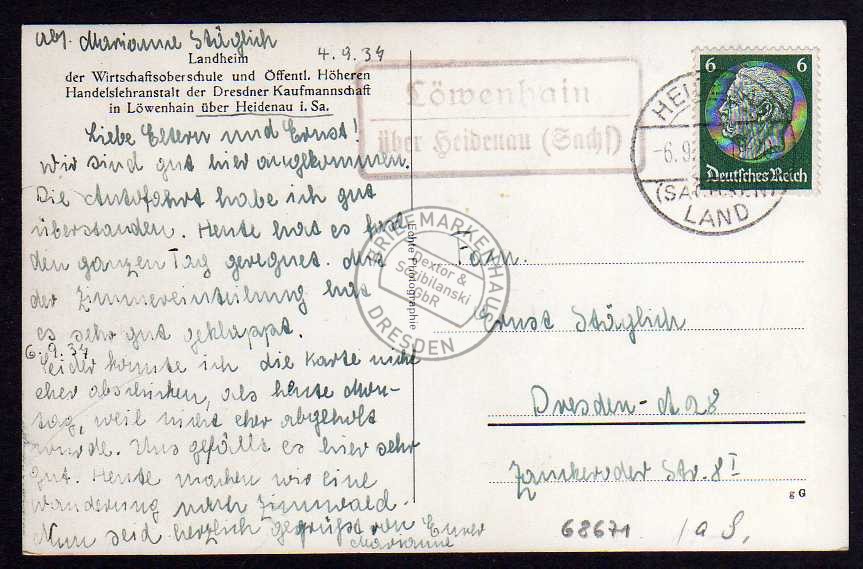 Abs. Marianne Stäglich
4.9.37
Landheim
der Wirtschaftsoberschule und Öffentl. Höheren
Handelslehranstalt der Dresdner Kaufmannschaft
in Löwenhain über Heidenau i. Sa.
Liebe Eltern und Ernst!
Wir sind gut hier angekommen.
Die Autofahrt habe ich gut
überstanden. Heute hat es fast
den ganzen Tag geregnet. Mit
der Zimmereinteilung hat
es sehr gut geklappt.
6.9.37
Leider konnte ich die Karte nicht
eher abschicken, als heute Mon-
tag, weil nicht eher abgeholt
wurde. Uns gefällt es hier sehr
gut. Heute machen wir eine
Wanderung nach Zinnwald.
Nun seid herzlich gegrüßt von Eurer
Marianne
Löwenhain
über Heidenau (Sachs)
6
6
Deutsches Reich
HEI
-6.9.
(SACHSEN)
LAND
Echte Photographie
BRIEFMARKENHAUS
Dextor &
Scibilanski
GbR
DRESDEN
Fam.
Ernst Stäglich
Dresden-A 28
Zauckeroder Str. 8 I
g G
68671
1a S.